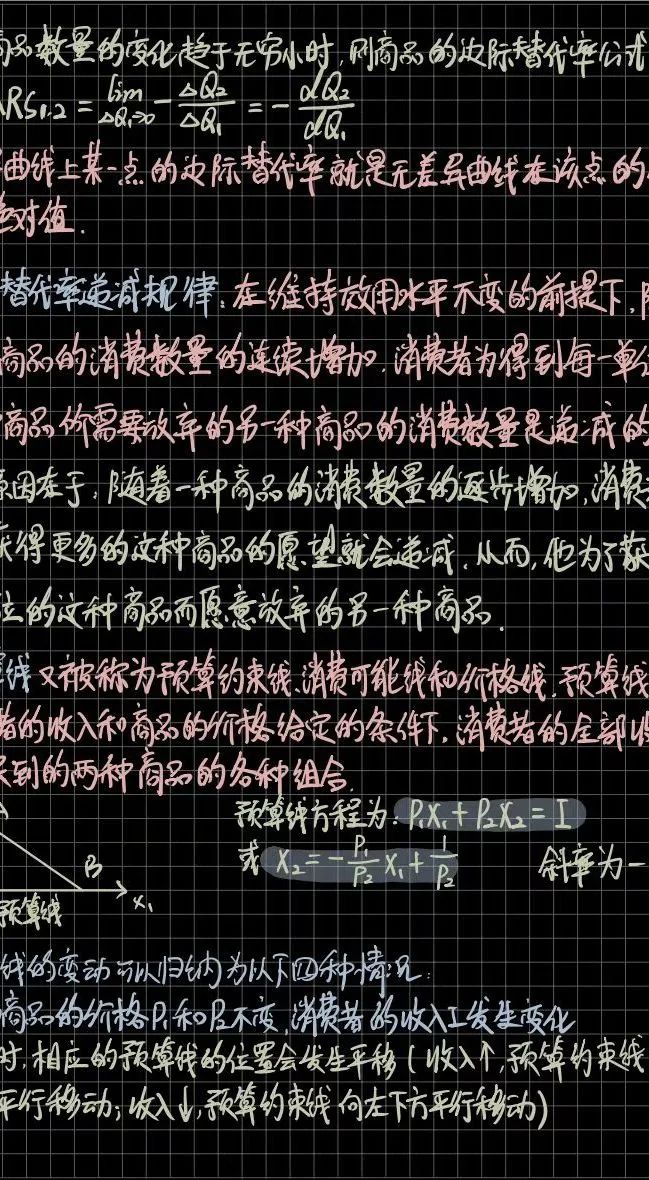 商品数量的变化趋于无穷小时,则商品的边际替代率公式
MRS₁.₂ = lim ΔQ₁→0 - ΔQ₂/ΔQ₁ = - dQ₂/dQ₁
曲线上某一点的边际替代率就是无差异曲线在该点的
绝对值.
替代率递减规律:在维持效用水平不变的前提下,随
商品的消费数量的连续增加,消费者为得到每一单位
商品所需要放弃的另一种商品的消费数量是递减的
原因在于:随着一种商品的消费数量的逐步增加,消费者
获得更多的这种商品的愿望就会递减,从而,他为了获
位的这种商品而愿意放弃的另一种商品.
算线又被称为预算约束线、消费可能线和价格线.预算线
者的收入和商品的价格给定的条件下,消费者的全部收
买到的两种商品的各种组合.
预算线方程为:P₁X₁+P₂X₂=I
或 X₂=-P₁/P₂ X₁+1/P₂ 斜率为-
B
X₁
预算线
线的变动可以归纳为以下四种情况:
商品的价格P₁和P₂不变,消费者的收入I发生变化
时,相应的预算线的位置会发生平移(收入↑,预算约束线
平行移动;收入↓,预算约束线向左下方平行移动)